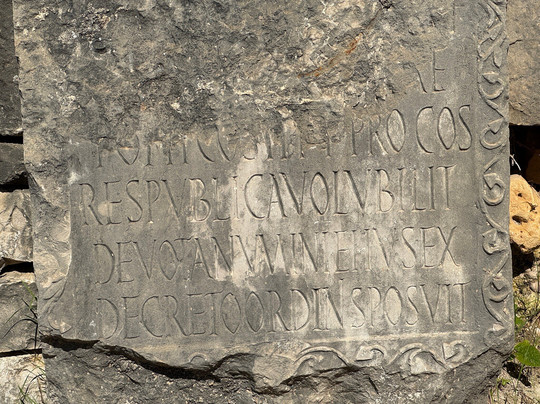 PROCOS
RESPVBLICAVOLVBILIT
DEVOTANVMINIEIVSEX
DECRETOORDINSPOSVIT